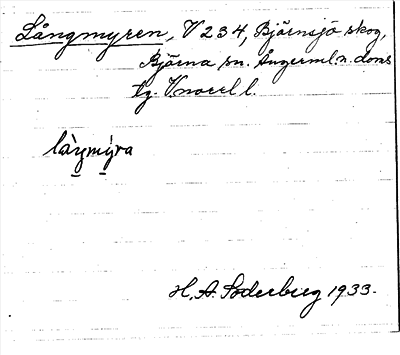 Långmyren, V 234, Björnsjö skog,
Björna sn. Ångerml. n. doms
tg. V. norell l.
H. A. Söderberg 1933.